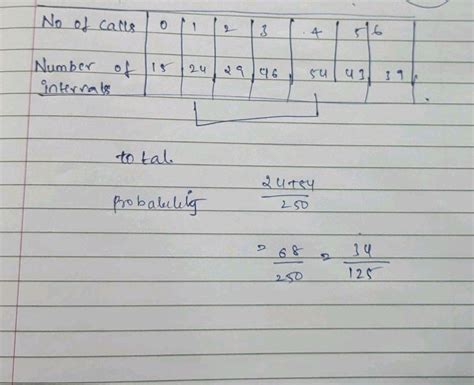 No of calls 0 1 2 3 4 5 6
Number of 15 24 29 46 54 43 39
internals
total
probability 24+54
250
= 68
250
= 34
125